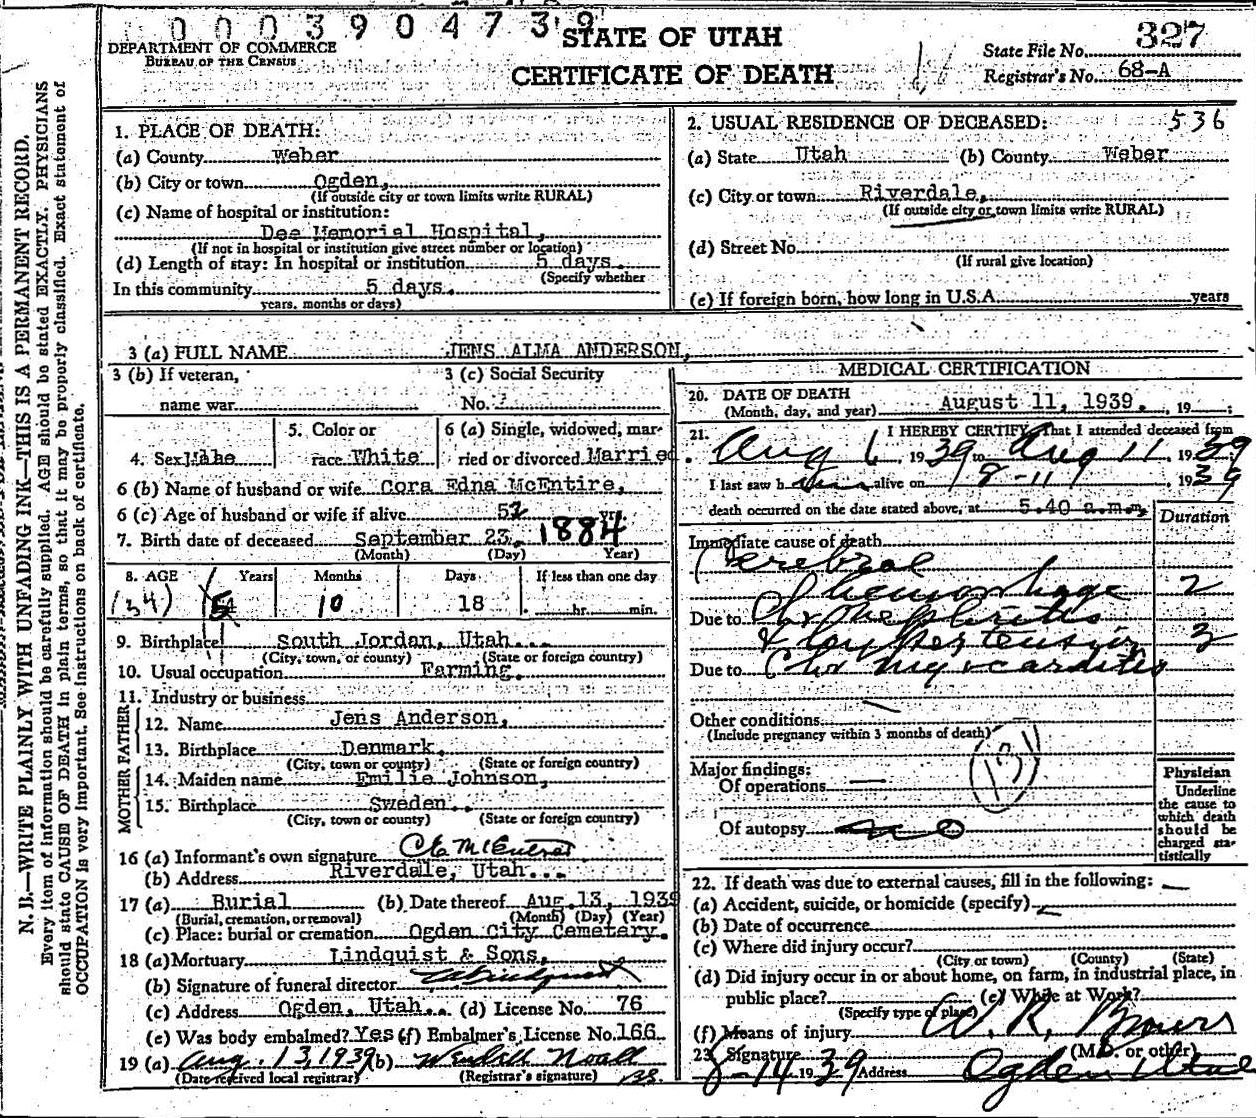 00039047 39
DEPARTMENT OF COMMERCE
BUREAU OF THE CENSUS
STATE OF UTAH
CERTIFICATE OF DEATH
State File No. 327
Registrar's No. 68-A
N. B.—WRITE PLAINLY WITH UNFADING INK—THIS IS A PERMANENT RECORD.
Every item of information should be carefully supplied. AGE should be stated EXACTLY. PHYSICIANS
should state CAUSE OF DEATH in plain terms, so that it may be properly classified. Exact statement of
OCCUPATION is very important. See instructions on back of certificate.
1. PLACE OF DEATH:
(a) County Weber
(b) City or town Ogden,
(If outside city or town limits write RURAL)
(c) Name of hospital or institution:
Dee Memorial Hospital,
(If not in hospital or institution give street number or location)
(d) Length of stay: In hospital or institution 5 days.
(Specify whether
In this community 5 days.
years, months or days)
2. USUAL RESIDENCE OF DECEASED: 536
(a) State Utah (b) County Weber
(c) City or town Riverdale,
(If outside city or town limits write RURAL)
(d) Street No.
(If rural give location)
(e) If foreign born, how long in U.S.A. years
3 (a) FULL NAME JENS ALMA ANDERSON,
3 (b) If veteran,
name war
3 (c) Social Security
No. ?
4. Sex Male
5. Color or
race White
6 (a) Single, widowed, mar-
ried or divorced Married
6 (b) Name of husband or wife Cora Edna McEntire,
6 (c) Age of husband or wife if alive 52 yrs.
7. Birth date of deceased September 23, 1884
(Month) (Day) Year)
8. AGE Years Months Days If less than one day
(54) 10 18 hr. min.
9. Birthplace South Jordan, Utah...
(City, town, or county) (State or foreign country)
10. Usual occupation Farming.
11. Industry or business
FATHER
12. Name Jens Anderson,
13. Birthplace Denmark.
(City, town or county) (State or foreign country)
MOTHER
14. Maiden name Emilie Johnson,
15. Birthplace Sweden..
(City, town or county) (State or foreign country)
16 (a) Informant's own signature
(b) Address Riverdale, Utah...
17 (a) Burial (b) Date thereof Aug. 13, 1939
(Burial, cremation, or removal) (Month) (Day) (Year)
(c) Place: burial or cremation Ogden City Cemetery.
18 (a) Mortuary Lindquist & Sons,
(b) Signature of funeral director
(c) Address Ogden, Utah.. (d) License No. 76
(e) Was body embalmed? Yes (f) Embalmer's License No. 166
19 (a) Aug. 13, 1939 (b) Wendell Noall
(Date received local registrar) (Registrar's signature)
MEDICAL CERTIFICATION
20. DATE OF DEATH
(Month, day, and year) August 11, 1939. , 19 ;
21. I HEREBY CERTIFY, That I attended deceased from
Aug 6, 1939 to Aug 11, 1939
I last saw him alive on 8-11, 1939
death occurred on the date stated above, at 5.40 a.m.m.
Duration
Immediate cause of death
Cerebral
Hemorhage 2
Due to Chr Nephritis
& hypertension 3
Due to Chr myocarditis
Other conditions
(Include pregnancy within 3 months of death)
131
Major findings:
Of operations —
Of autopsy no
Physician
Underline
the cause to
which death
should be
charged sta-
tistically
22. If death was due to external causes, fill in the following: —
(a) Accident, suicide, or homicide (specify)
(b) Date of occurrence
(c) Where did injury occur?
(City or town) (County) (State)
(d) Did injury occur in or about home, on farm, in industrial place, in
public place? (e) While at Work?
(Specify type of place)
(f) Means of injury
W. R. Brown
23. Signature (M.D. or other)
8-14 1939 Address Ogden Utah